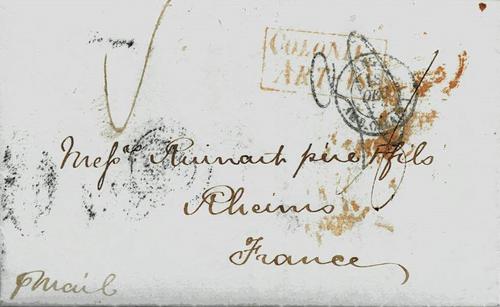 COLONIE
ART
Messrs Ruinart père & fils
Rheims
France
p Mail